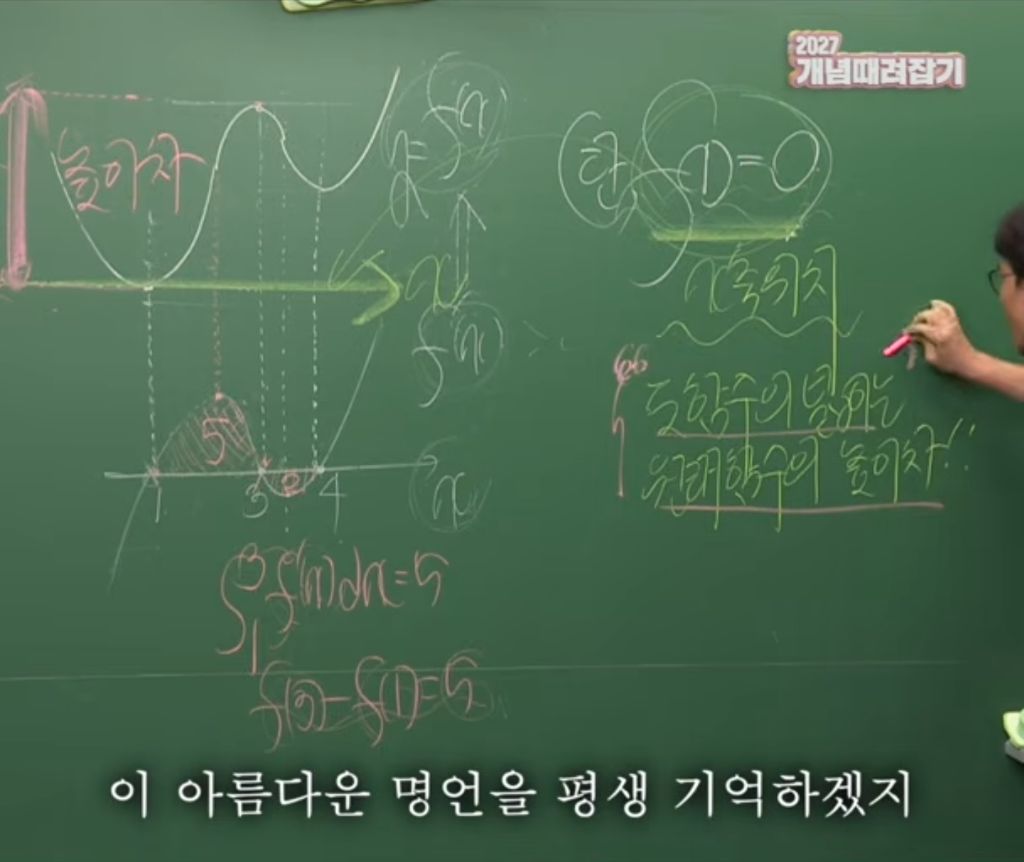 2027
개념때려잡기
높이차
y = f(x)
단, f(1) = 0
x
x축 위치
f'(x)
"도함수의 넓이는
원래함수의 높이차!!
5
2
1
3
4
x
∫₁³ f'(x)dx = 5
f(3) - f(1) = 5
이 아름다운 명언을 평생 기억하겠지